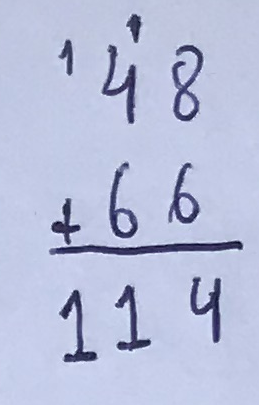 1 1
48
+66
114